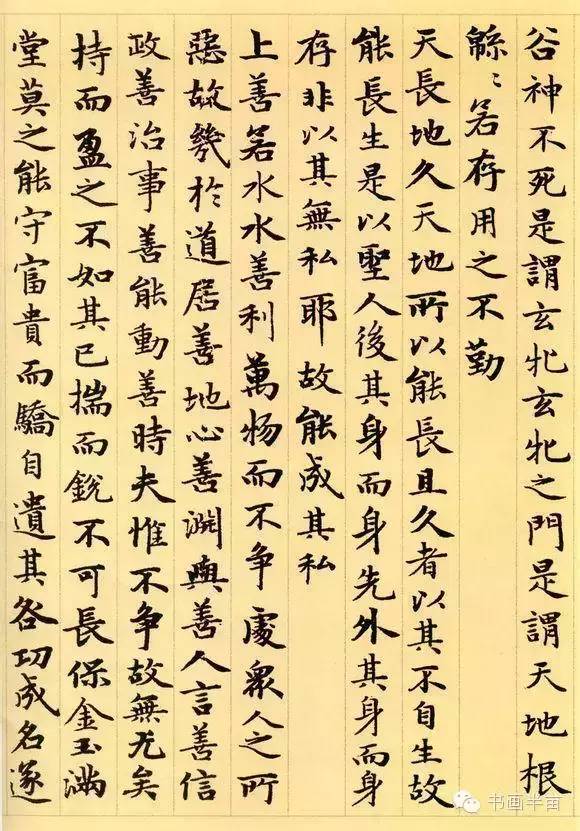 谷神不死是謂玄牝玄牝之門是謂天地根
緜〻若存用之不勤
天長地久天地所以能長且久者以其不自生故
能長生是以聖人後其身而身先外其身而身
存非以其無私耶故能成其私
上善若水水善利萬物而不争處衆人之所
惡故幾於道居善地心善渊與善人言善信
政善治事善能動善時夫惟不争故無尤矣
持而盈之不如其已揣而銳不可長保金玉满
堂莫之能守富貴而驕自遺其咎功成名遂
书画半亩